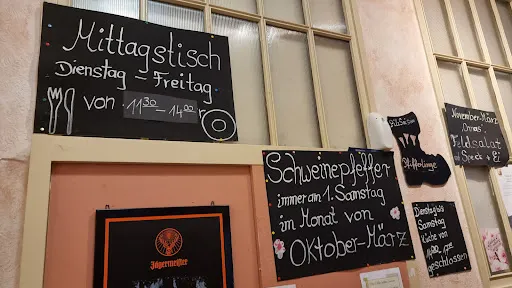 Mittagstisch
Dienstag - Freitag
von 11³⁰ - 14⁰⁰
Jägermeister
Schweinepfeffer
immer am 1. Samstag
im Monat von
Oktober-März
Pfifferlinge
November-März
Feldsalat
Speck + Ei
Dienstag bis
Samstag
Küche von
geschlossen